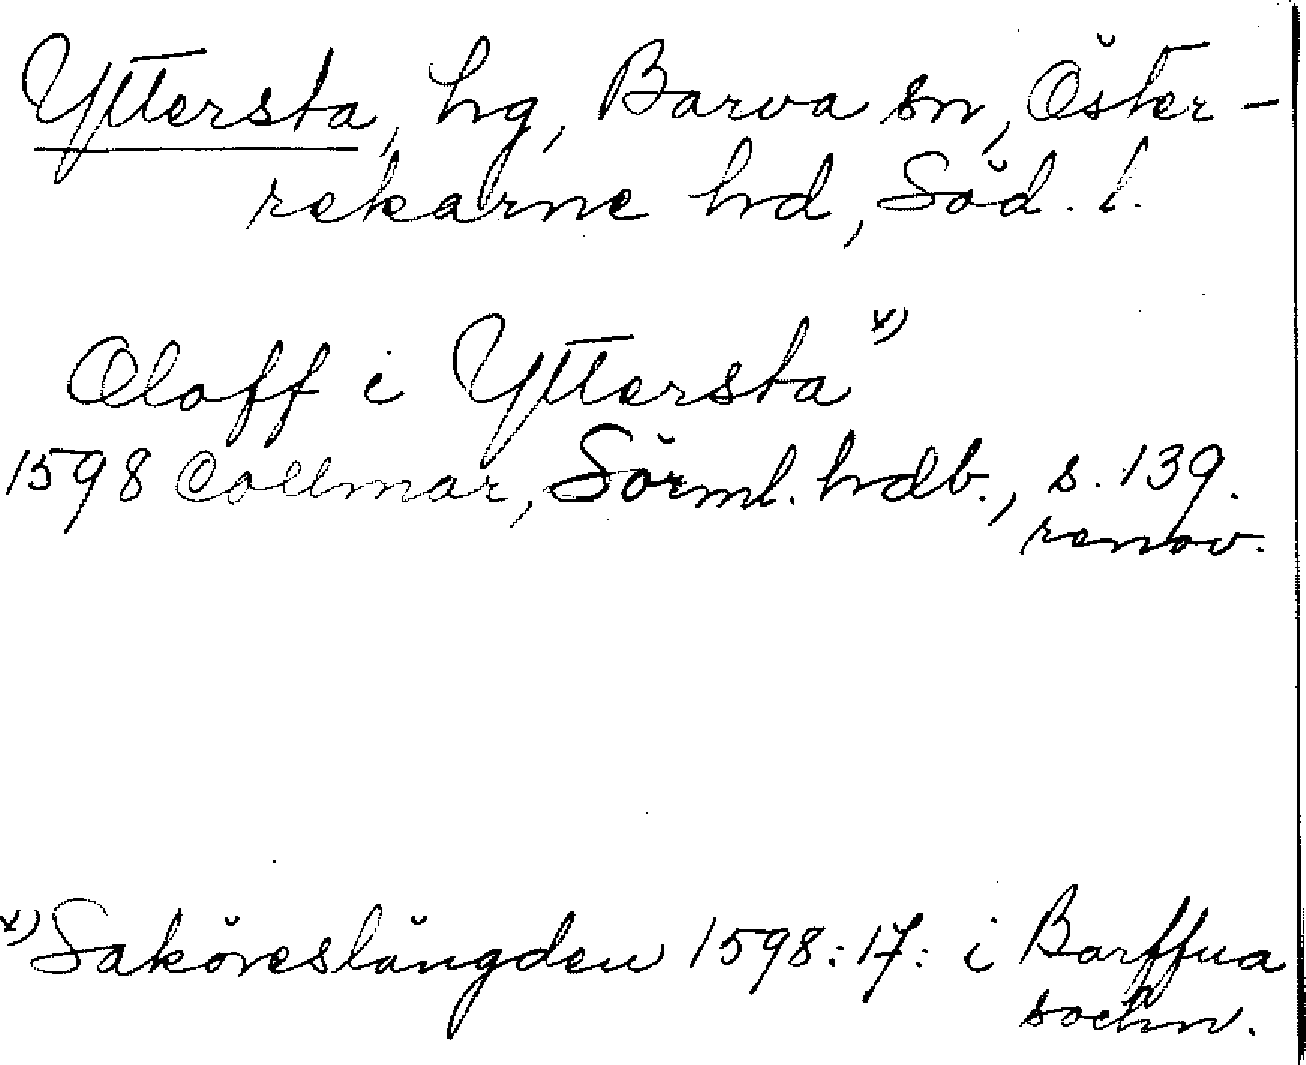 Yttersta, hg, Barva sn, Öster-
rekarne hd, Söd. l.
Oloff i Yttersta x)
1598 Collmar, Sörml. hdb., s. 139.
renov.
x) Saköreslängden 1598:17: i Barffua
sochn.